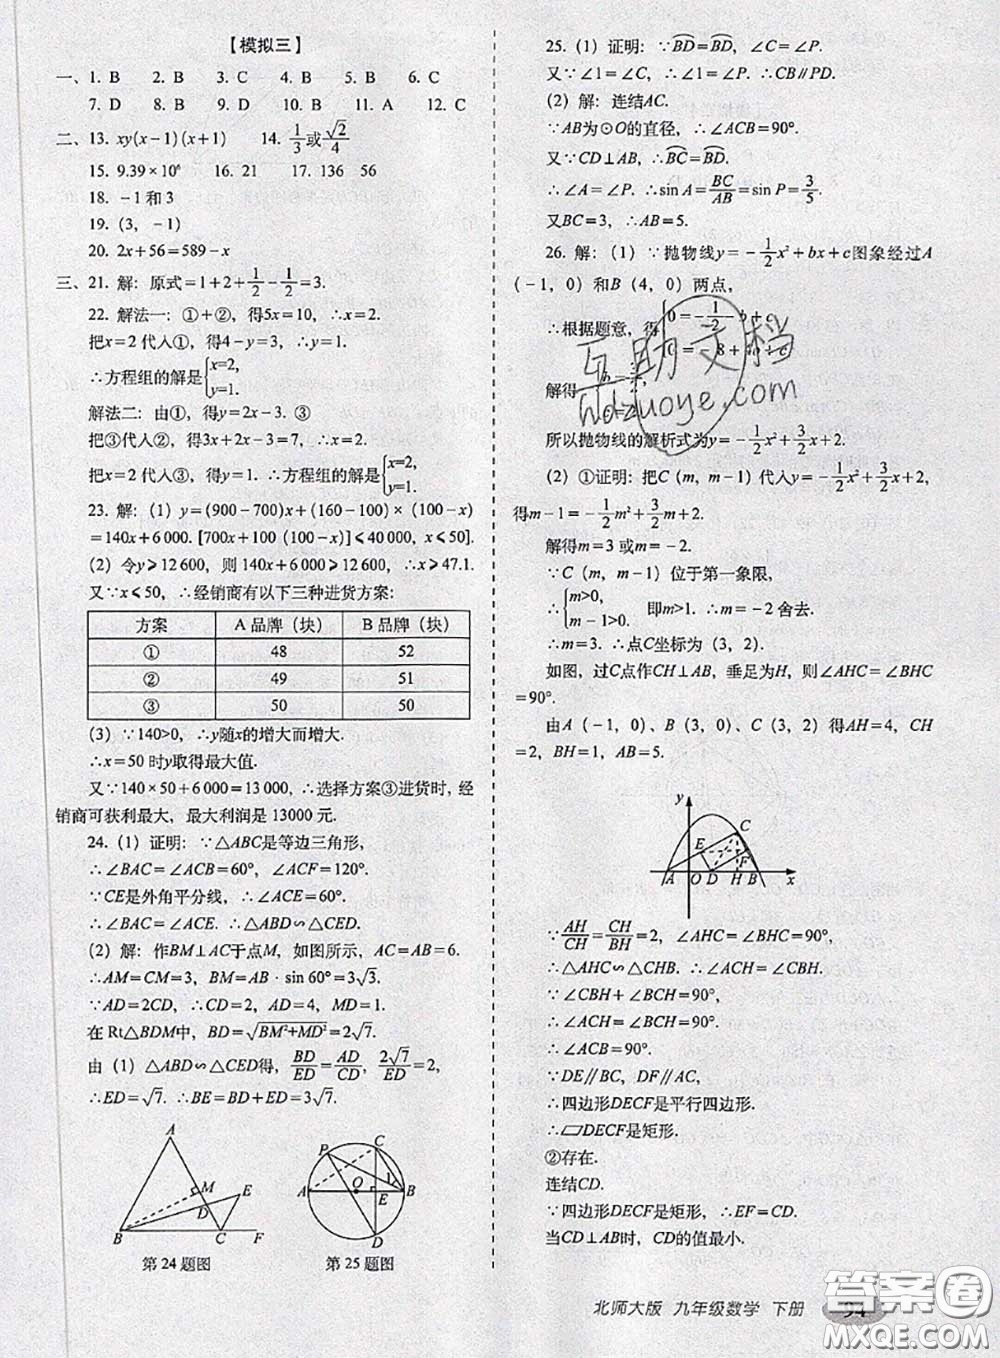 【模拟三】
一、1. B 2. B 3. C 4. B 5. B 6. C
7. D 8. B 9. D 10. B 11. A 12. C
二、13. xy(x－1)(x＋1) 14. 1/3或√2/4
15. 9.39×10⁶ 16. 21 17. 136 56
18. －1和3
19.（3，－1）
20. 2x＋56＝589－x
三、21. 解：原式＝1＋2＋1/2－1/2＝3.
22. 解法一：①＋②，得5x＝10，∴x＝2.
把x＝2代入①，得4－y＝3，∴y＝1.
∴方程组的解是{x=2, y=1.
解法二：由①，得y＝2x－3. ③
把③代入②，得3x＋2x－3＝7，∴x＝2.
把x＝2代入③，得y＝1. ∴方程组的解是{x=2, y=1.
23. 解：（1）y＝(900－700)x＋(160－100)×(100－x)
＝140x＋6 000. [700x＋100 (100－x)]⩽40 000，x⩽50].
（2）令y⩾12 600，则 140x＋6 000⩾12 600，∴x⩾47.1.
又∵x⩽50，∴经销商有以下三种进货方案：
方案 A品牌（块） B品牌（块）
① 48 52
② 49 51
③ 50 50
（3）∵140>0，∴y随x的增大而增大.
∴x＝50时y取得最大值.
又∵140×50＋6 000＝13 000，∴选择方案③进货时，经
销商可获利最大，最大利润是13000元.
24.（1）证明：∵△ABC是等边三角形，
∴∠BAC＝∠ACB＝60°，∠ACF＝120°.
∵CE是外角平分线，∴∠ACE＝60°.
∴∠BAC＝∠ACE. ∴△ABD∽△CED.
（2）解：作BM⊥AC于点M，如图所示，AC＝AB＝6.
∴AM＝CM＝3，BM＝AB·sin 60°＝3√3.
∵AD＝2CD，∴CD＝2，AD＝4，MD＝1.
在 Rt△BDM中，BD＝√(BM²+MD²)＝2√7.
由（1）△ABD∽△CED得，BD/ED＝AD/CD，2√7/ED＝2，
∴ED＝√7. ∴BE＝BD＋ED＝3√7.
A M E D B C F
P C 1 A O E B D
第24题图 第25题图
25.（1）证明：∵B͡D＝B͡D，∠C＝∠P.
又∵∠1＝∠C，∴∠1＝∠P. ∴CB∥PD.
（2）解：连结AC.
∵AB为⊙O的直径，∴∠ACB＝90°.
又∵CD⊥AB，∴B͡C＝B͡D.
∴∠A＝∠P. ∴sin A＝BC/AB＝sin P＝3/5.
又BC＝3，∴AB＝5.
26. 解：（1）∵抛物线y＝－1/2x²＋bx＋c图象经过A
（－1，0）和B（4，0）两点，
∴根据题意，得{0＝－1/2－b＋c, 0＝－8＋4b＋c
解得
所以抛物线的解析式为y＝－1/2x²＋3/2x＋2.
（2）①证明：把C（m，m－1）代入y＝－1/2x²＋3/2x＋2，
得m－1＝－1/2m²＋3/2m＋2.
解得m＝3或m＝－2.
∵C（m，m－1）位于第一象限，
∴{m>0, m－1>0. 即m>1. ∴m＝－2舍去.
∴m＝3. ∴点C坐标为（3，2）.
如图，过C点作CH⊥AB，垂足为H，则∠AHC＝∠BHC
＝90°.
由A（－1，0）、B（3，0）、C（3，2）得AH＝4，CH
＝2，BH＝1，AB＝5.
y C E F A O D H B x
∵AH/CH＝CH/BH＝2，∠AHC＝∠BHC＝90°，
∴△AHC∽△CHB. ∴∠ACH＝∠CBH.
∵∠CBH＋∠BCH＝90°，
∴∠ACH＋∠BCH＝90°.
∴∠ACB＝90°.
∵DE∥BC，DF∥AC，
∴四边形DECF是平行四边形.
∴▱DECF是矩形.
②存在.
连结CD.
∵四边形DECF是矩形，∴EF＝CD.
当CD⊥AB时，CD的值最小.
互助文档
hdzuoye.com
北师大版 九年级数学 下册 94
答案圈
MXQE.COM